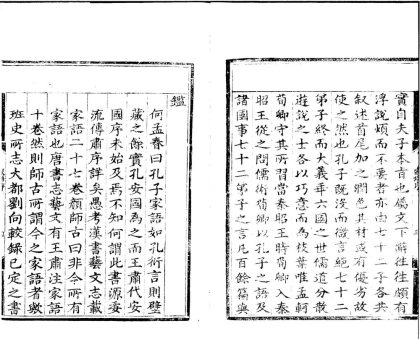 實自夫子本旨也屬文下辭往往頗有
浮說煩而不要者亦由七十二子各共
叙述首尾加之潤色其材或有優劣故
使之然也孔子既沒而微言絕七十二
弟子終而大義乖六國之世儒道分散
遊說之士各以巧意而為枝葉唯孟軻
荀卿守其所習當秦昭王時荀卿入秦
昭王從之問儒術荀卿以孔子之語及
諸國事七十二弟子之言凡百餘篇與
鑑
何孟春曰孔子家語如孔衍言則壁
藏之餘實孔安國為之而王肅代安
國序未始及焉不知何謂此書源委
流傳肅序詳矣愚考漢書藝文志載
家語二十七卷顏師古曰非今所有
家語也唐書志藝文有王肅注家語
十卷然則師古所謂今之家語者歟
班史所志大都劉向較錄已定之書